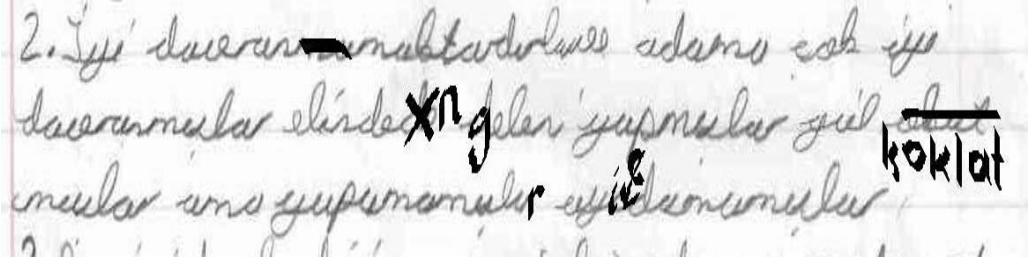 2. İyi davranmaktadırlar adama çok iyi
davranmışlar elinden gelen yapmışlar gül koklat
mışlar ama yapamamışlar iyi